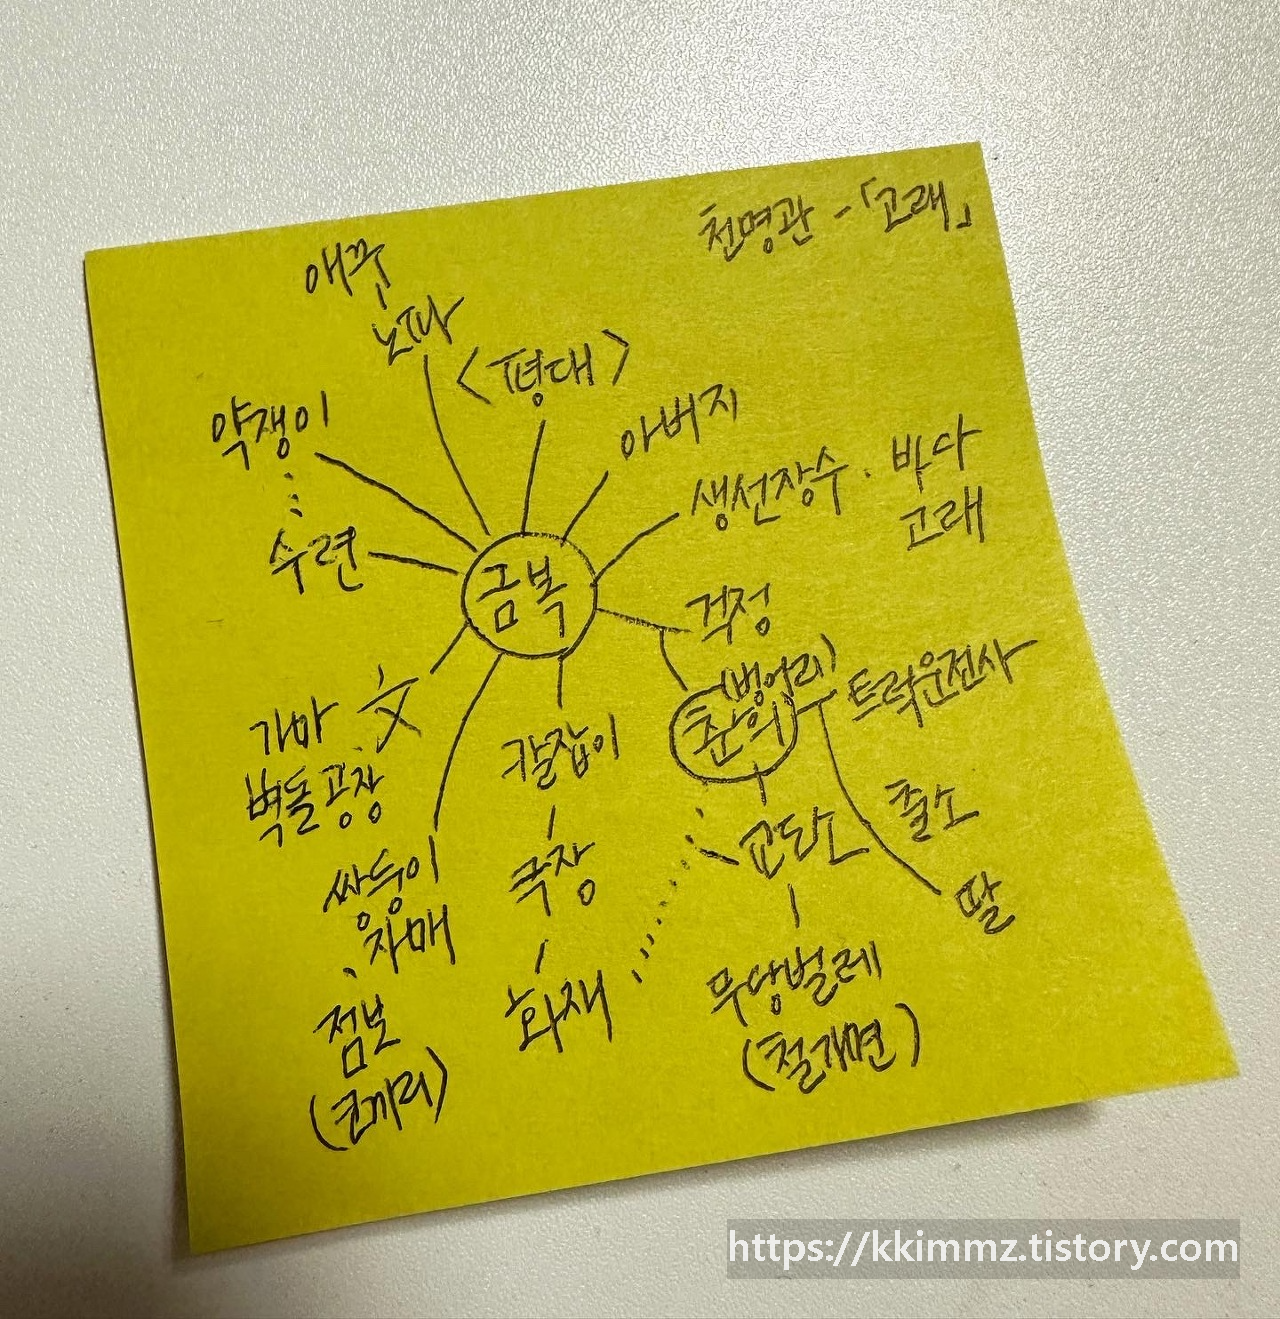 천명관 - 「고래」
애꾸
노파
<평대>
아버지
약쟁이
수련
생선장수 · 바다
고래
금복
걱정
(벙어리)
춘희
트럭운전사
가마 文
벽돌공장
칼잡이
쌍둥이
자매
극장
교탄소
출소
딸
점보
(코끼리)
화재
무당벌레
(철가면)
https://kkimmz.tistory.com